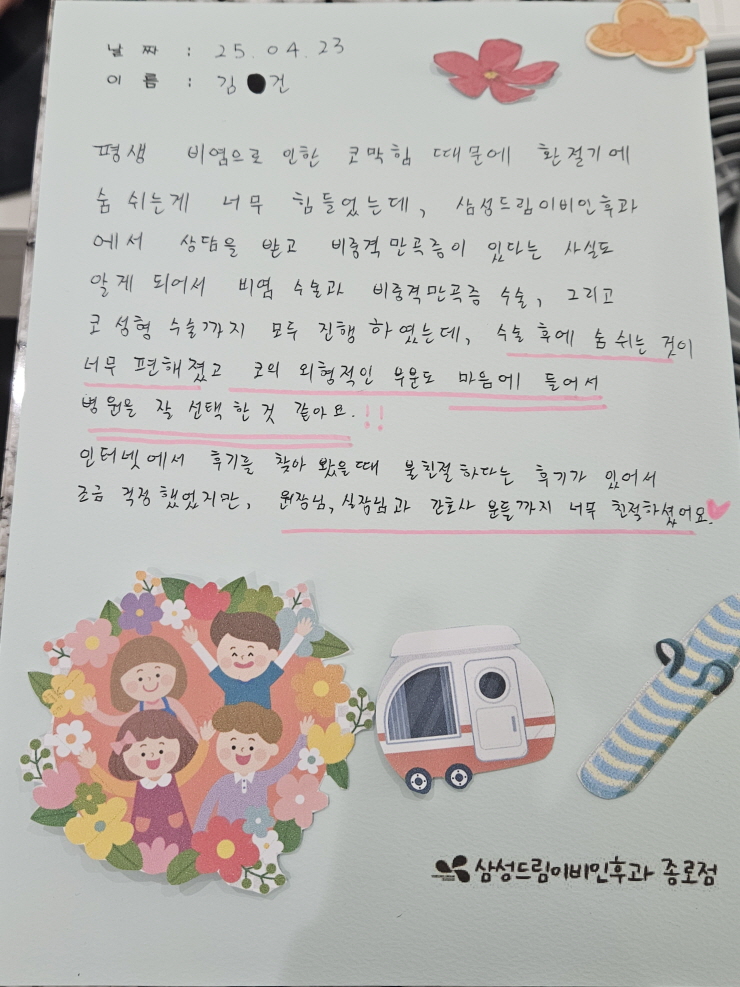 날 짜 : 25.04.23
이 름 : 김●건
평생 비염으로 인한 코막힘 때문에 환절기에
숨 쉬는게 너무 힘들었는데, 삼성드림이비인후과
에서 상담을 받고 비중격만곡증이 있다는 사실도
알게 되어서 비염 수술과 비중격만곡증 수술, 그리고
코 성형 수술까지 모두 진행 하였는데, 수술 후에 숨 쉬는 것이
너무 편해졌고 코의 외형적인 부분도 마음에 들어서
병원을 잘 선택한 것 같아요.!!
인터넷에서 후기를 찾아 봤을때 불친절하다는 후기가 있어서
조금 걱정했었지만, 원장님, 실장님과 간호사 분들까지 너무 친절하셨어요.
삼성드림이비인후과 종로점